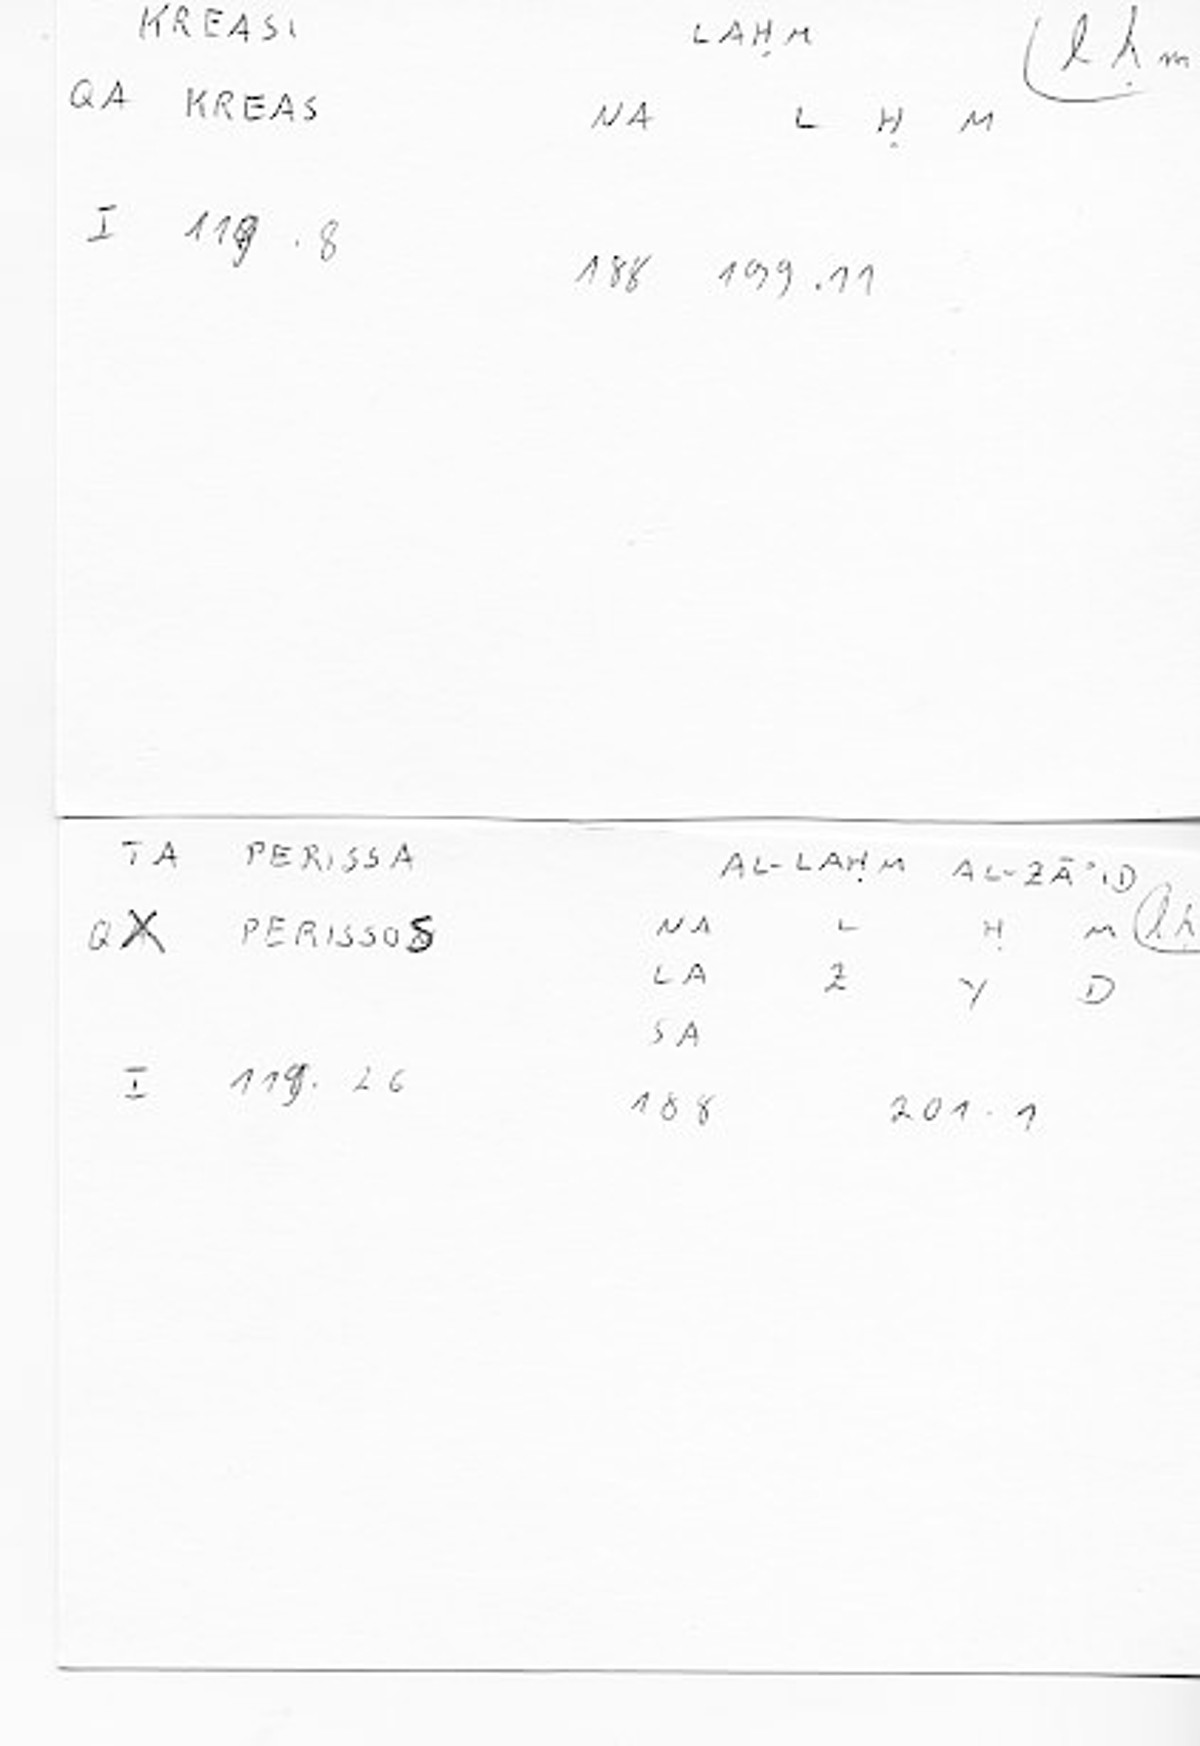 KREASI LAḤM (lḥm
QA KREAS NA L Ḥ M
I 119.8
188 199.11
TA PERISSA AL-LAḤM AL-ZĀʾID
QX PERISSOS NA L Ḥ M (lḥ
LA Z Y D
SA
I 119.26
188 201.1